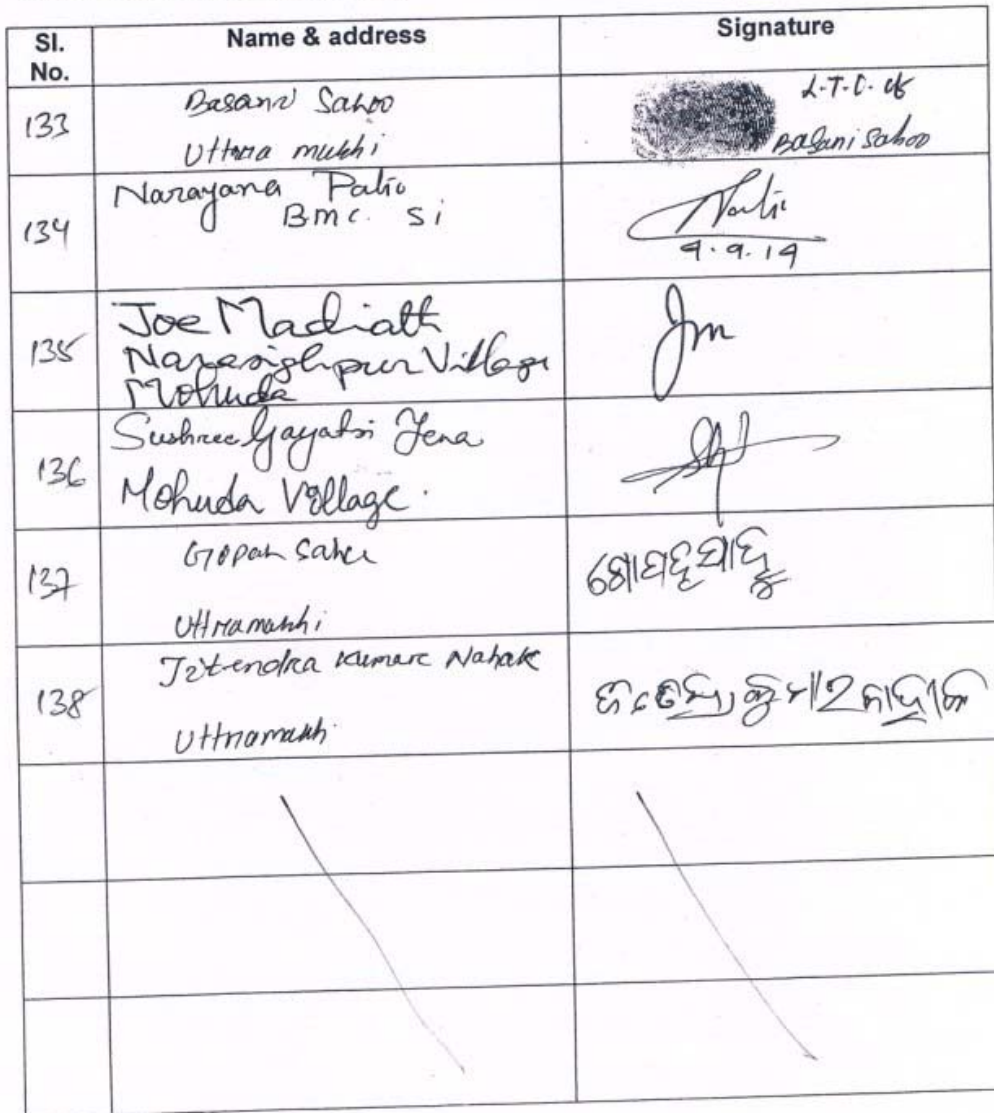 Sl. No. Name & address Signature
133 Basani Sahoo L.T.I. of
Uttara mukhi Basani Sahoo
134 Narayana Patro
BMC. Si
9.9.19
135 Joe Madiath Jm
Narasighpur Village
Mohuda
136 Sushree Gayatri Jena
Mohuda Village.
137 Gopal Sahu ଗୋପାଳ ସାହୁ
138 Jitendra Kumar Nahak ଜିତେନ୍ଦ୍ର କୁମାର ନାହାକ